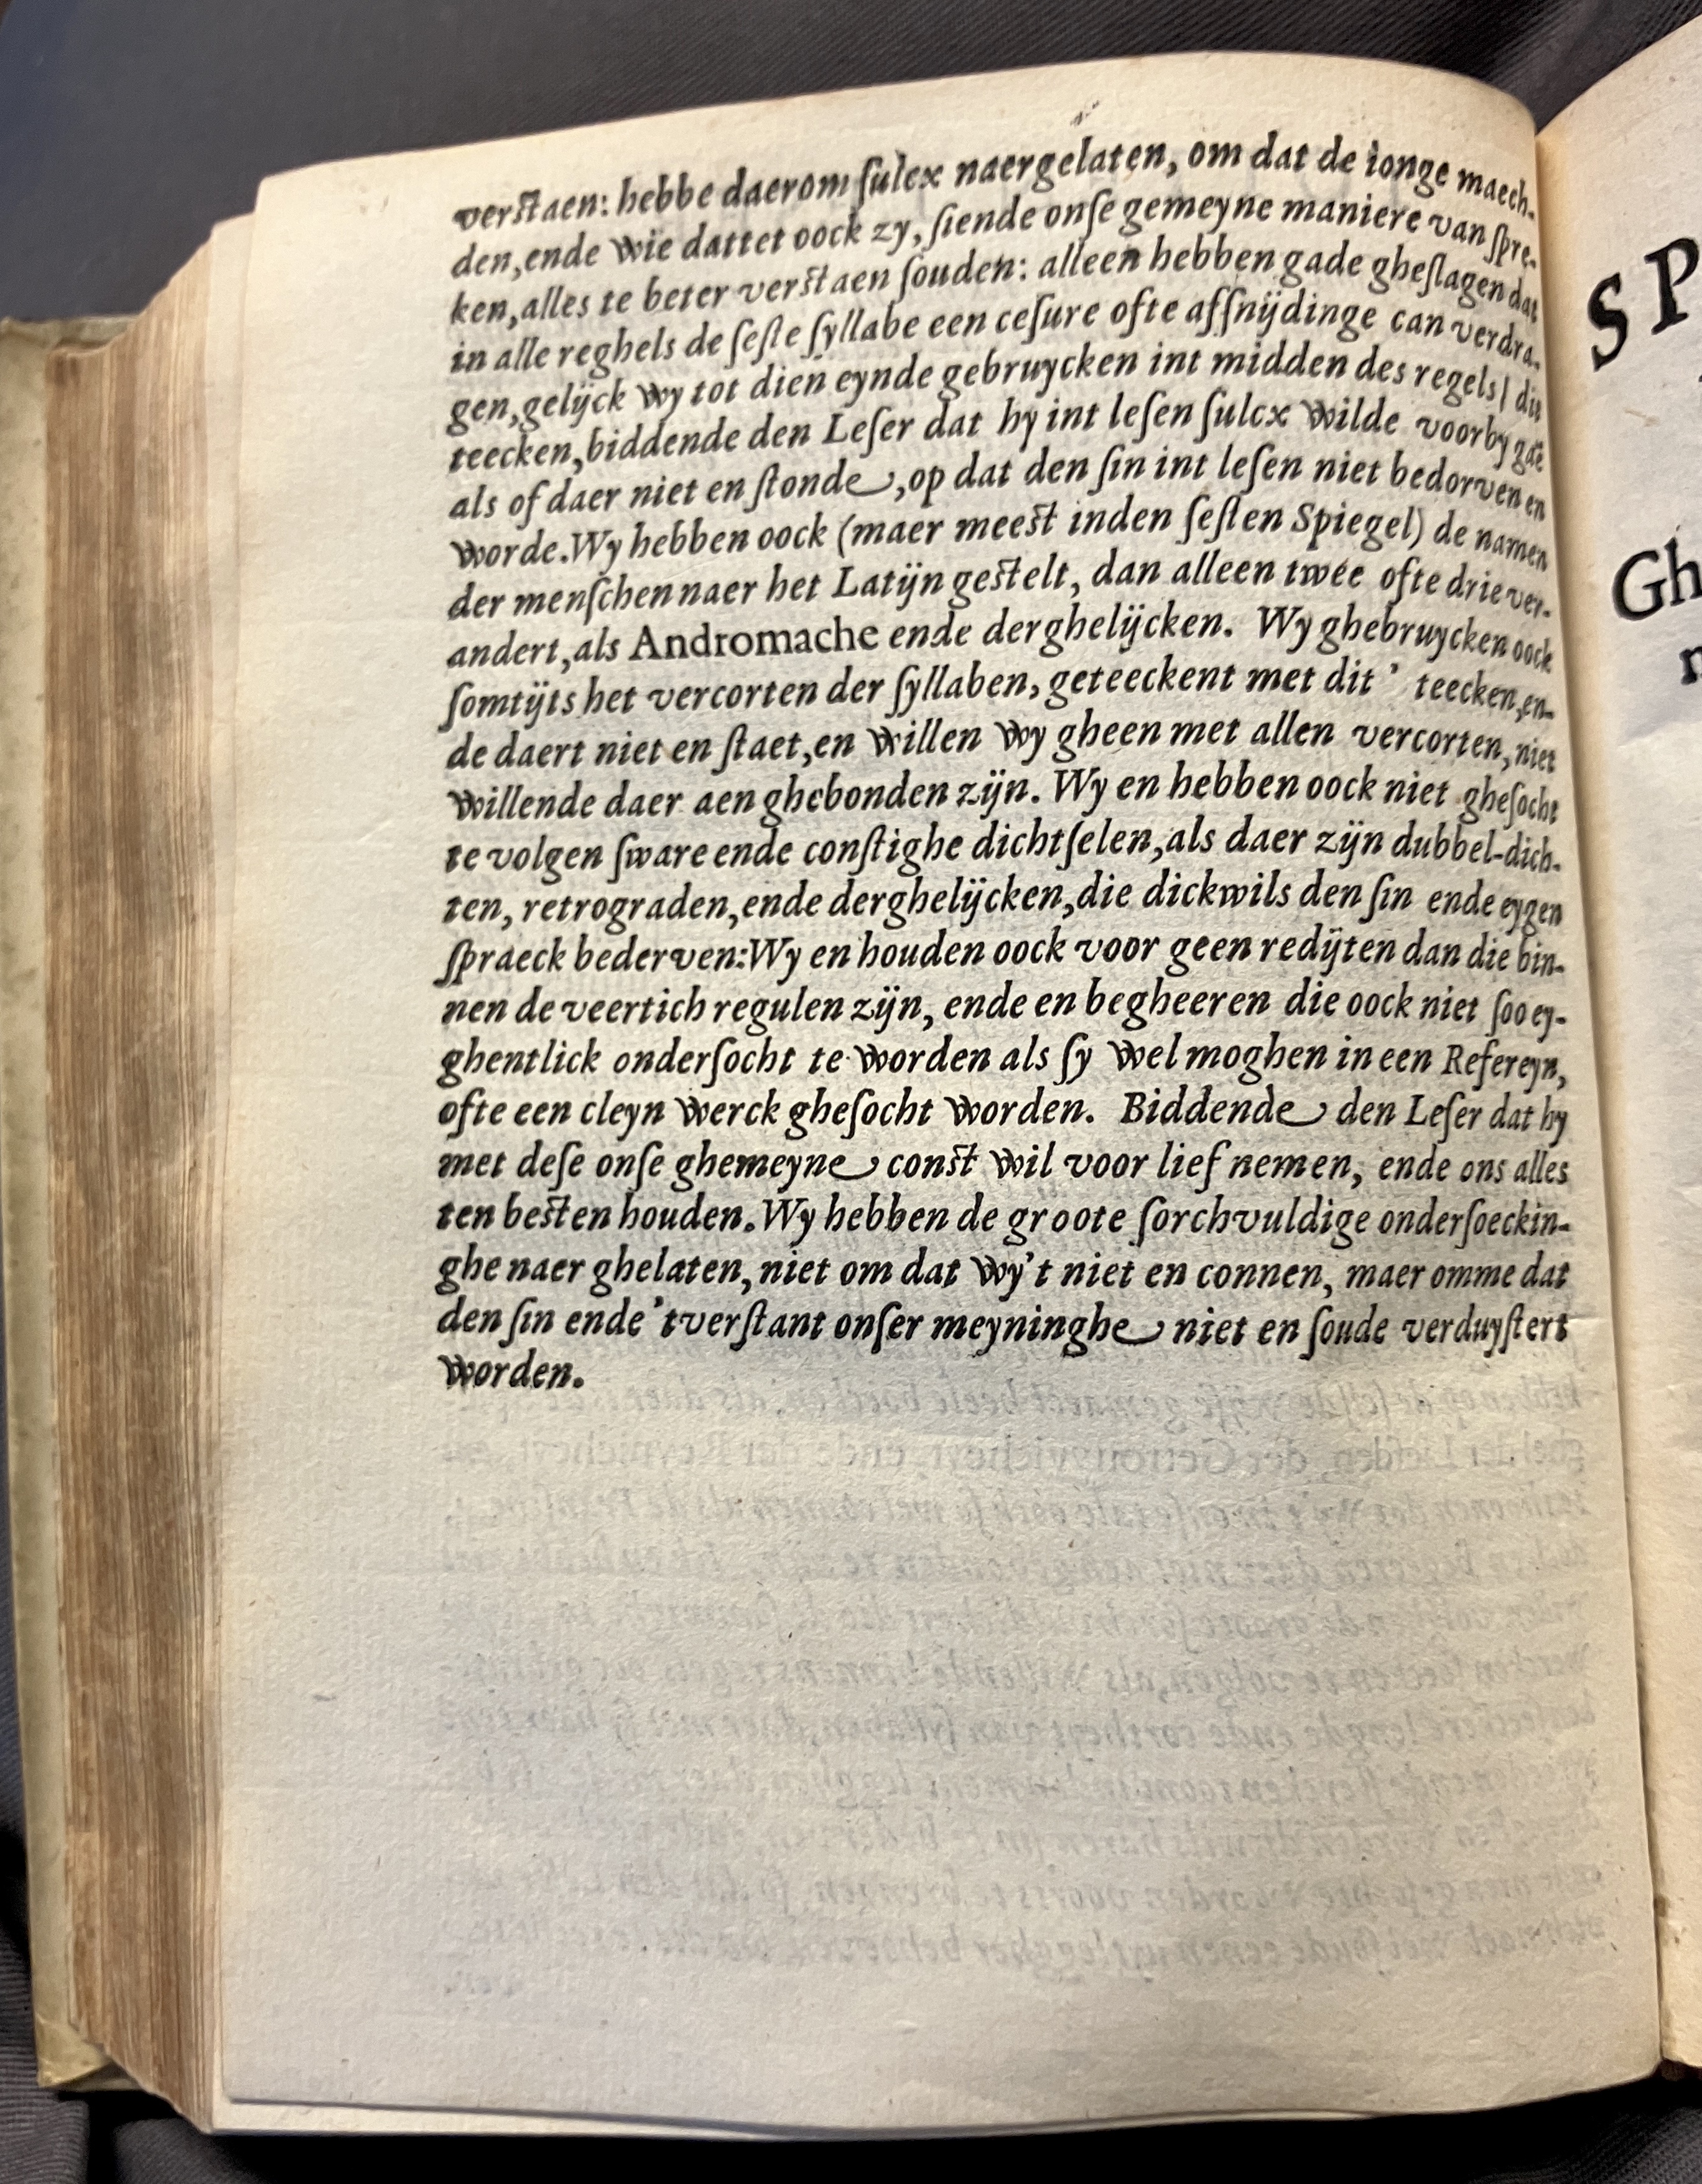 verſtaen: hebbe daerom ſulcx naergelaten, om dat de ionge maech-
den, ende wie dattet oock zy, ſiende onſe gemeyne maniere van ſpre-
ken, alles te beter verſtaen ſouden: alleen hebben gade gheſlagen dat
in alle reghels de ſeſte ſyllabe een ceſure ofte affnijdinge can verdra-
gen, gelijck wy tot dien eynde gebruycken int midden des regels| dit
teecken, biddende den Leſer dat hy int leſen ſulcx wilde voorby gaē
als of daer niet en ſtonde, op dat den ſin int leſen niet bedorven en
worde. Wy hebben oock (maer meeſt inden ſeſten Spiegel) de namen
der menſchen naer het Latijn geſtelt, dan alleen twee ofte drie ver-
andert, als Andromache ende derghelijcken. Wy ghebruycken oock
ſomtijts het vercorten der ſyllaben, geteeckent met dit ’ teecken, en-
de daert niet en ſtaet, en willen wy gheen met allen vercorten, niet
willende daer aen ghebonden zijn. Wy en hebben oock niet gheſocht
te volgen ſware ende conſtighe dichtſelen, als daer zijn dubbel-dich-
ten, retrograden, ende derghelijcken, die dickwils den ſin ende eygen
ſpraeck bederven: Wy en houden oock voor geen redijten dan die bin-
nen de veertich regulen zijn, ende en begheeren die oock niet ſoo ey-
ghentlick onderſocht te worden als ſy wel moghen in een Refereyn,
ofte een cleyn werck gheſocht worden. Biddende den Leſer dat hy
met deſe onſe ghemeyne conſt wil voor lief nemen, ende ons alles
ten beſten houden. Wy hebben de groote ſorchvuldige onderſoeckin-
ghe naer ghelaten, niet om dat wy’t niet en connen, maer omme dat
den ſin ende ’tverſtant onſer meyninghe niet en ſoude verduyſtert
worden.
SP
Gh